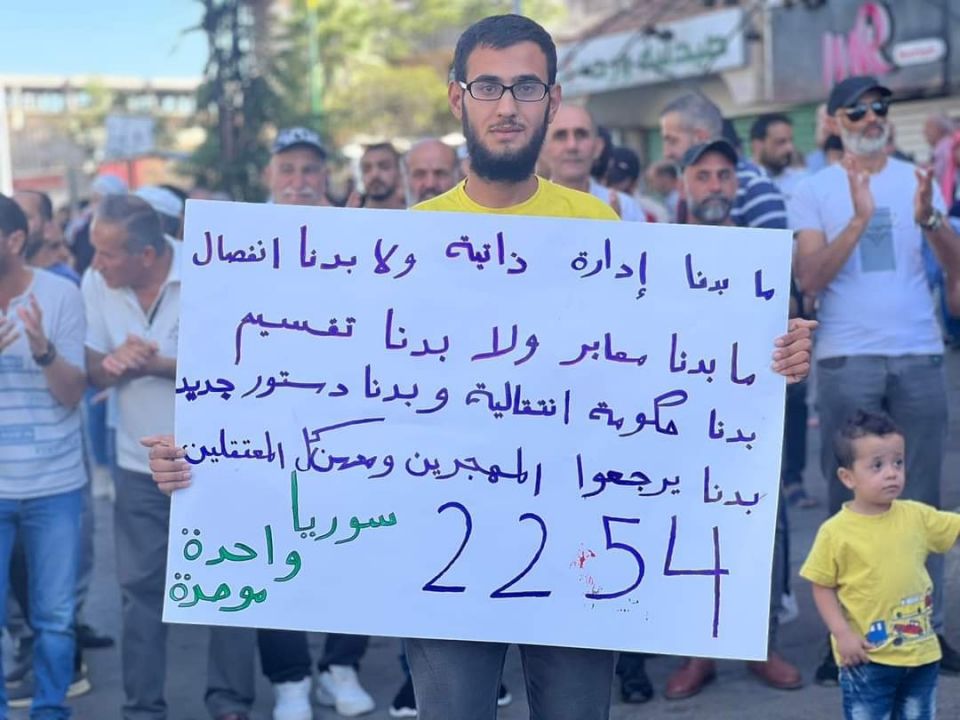 صيدلية
ما بدنا إدارة ذاتية ولا بدنا انفصال
ما بدنا معابر ولا بدنا تقسيم
بدنا حكومة انتقالية وبدنا دستور جديد
بدنا يرجعوا المهجرين كل المعتقلين
2254
سوريا
واحدة
موحدة